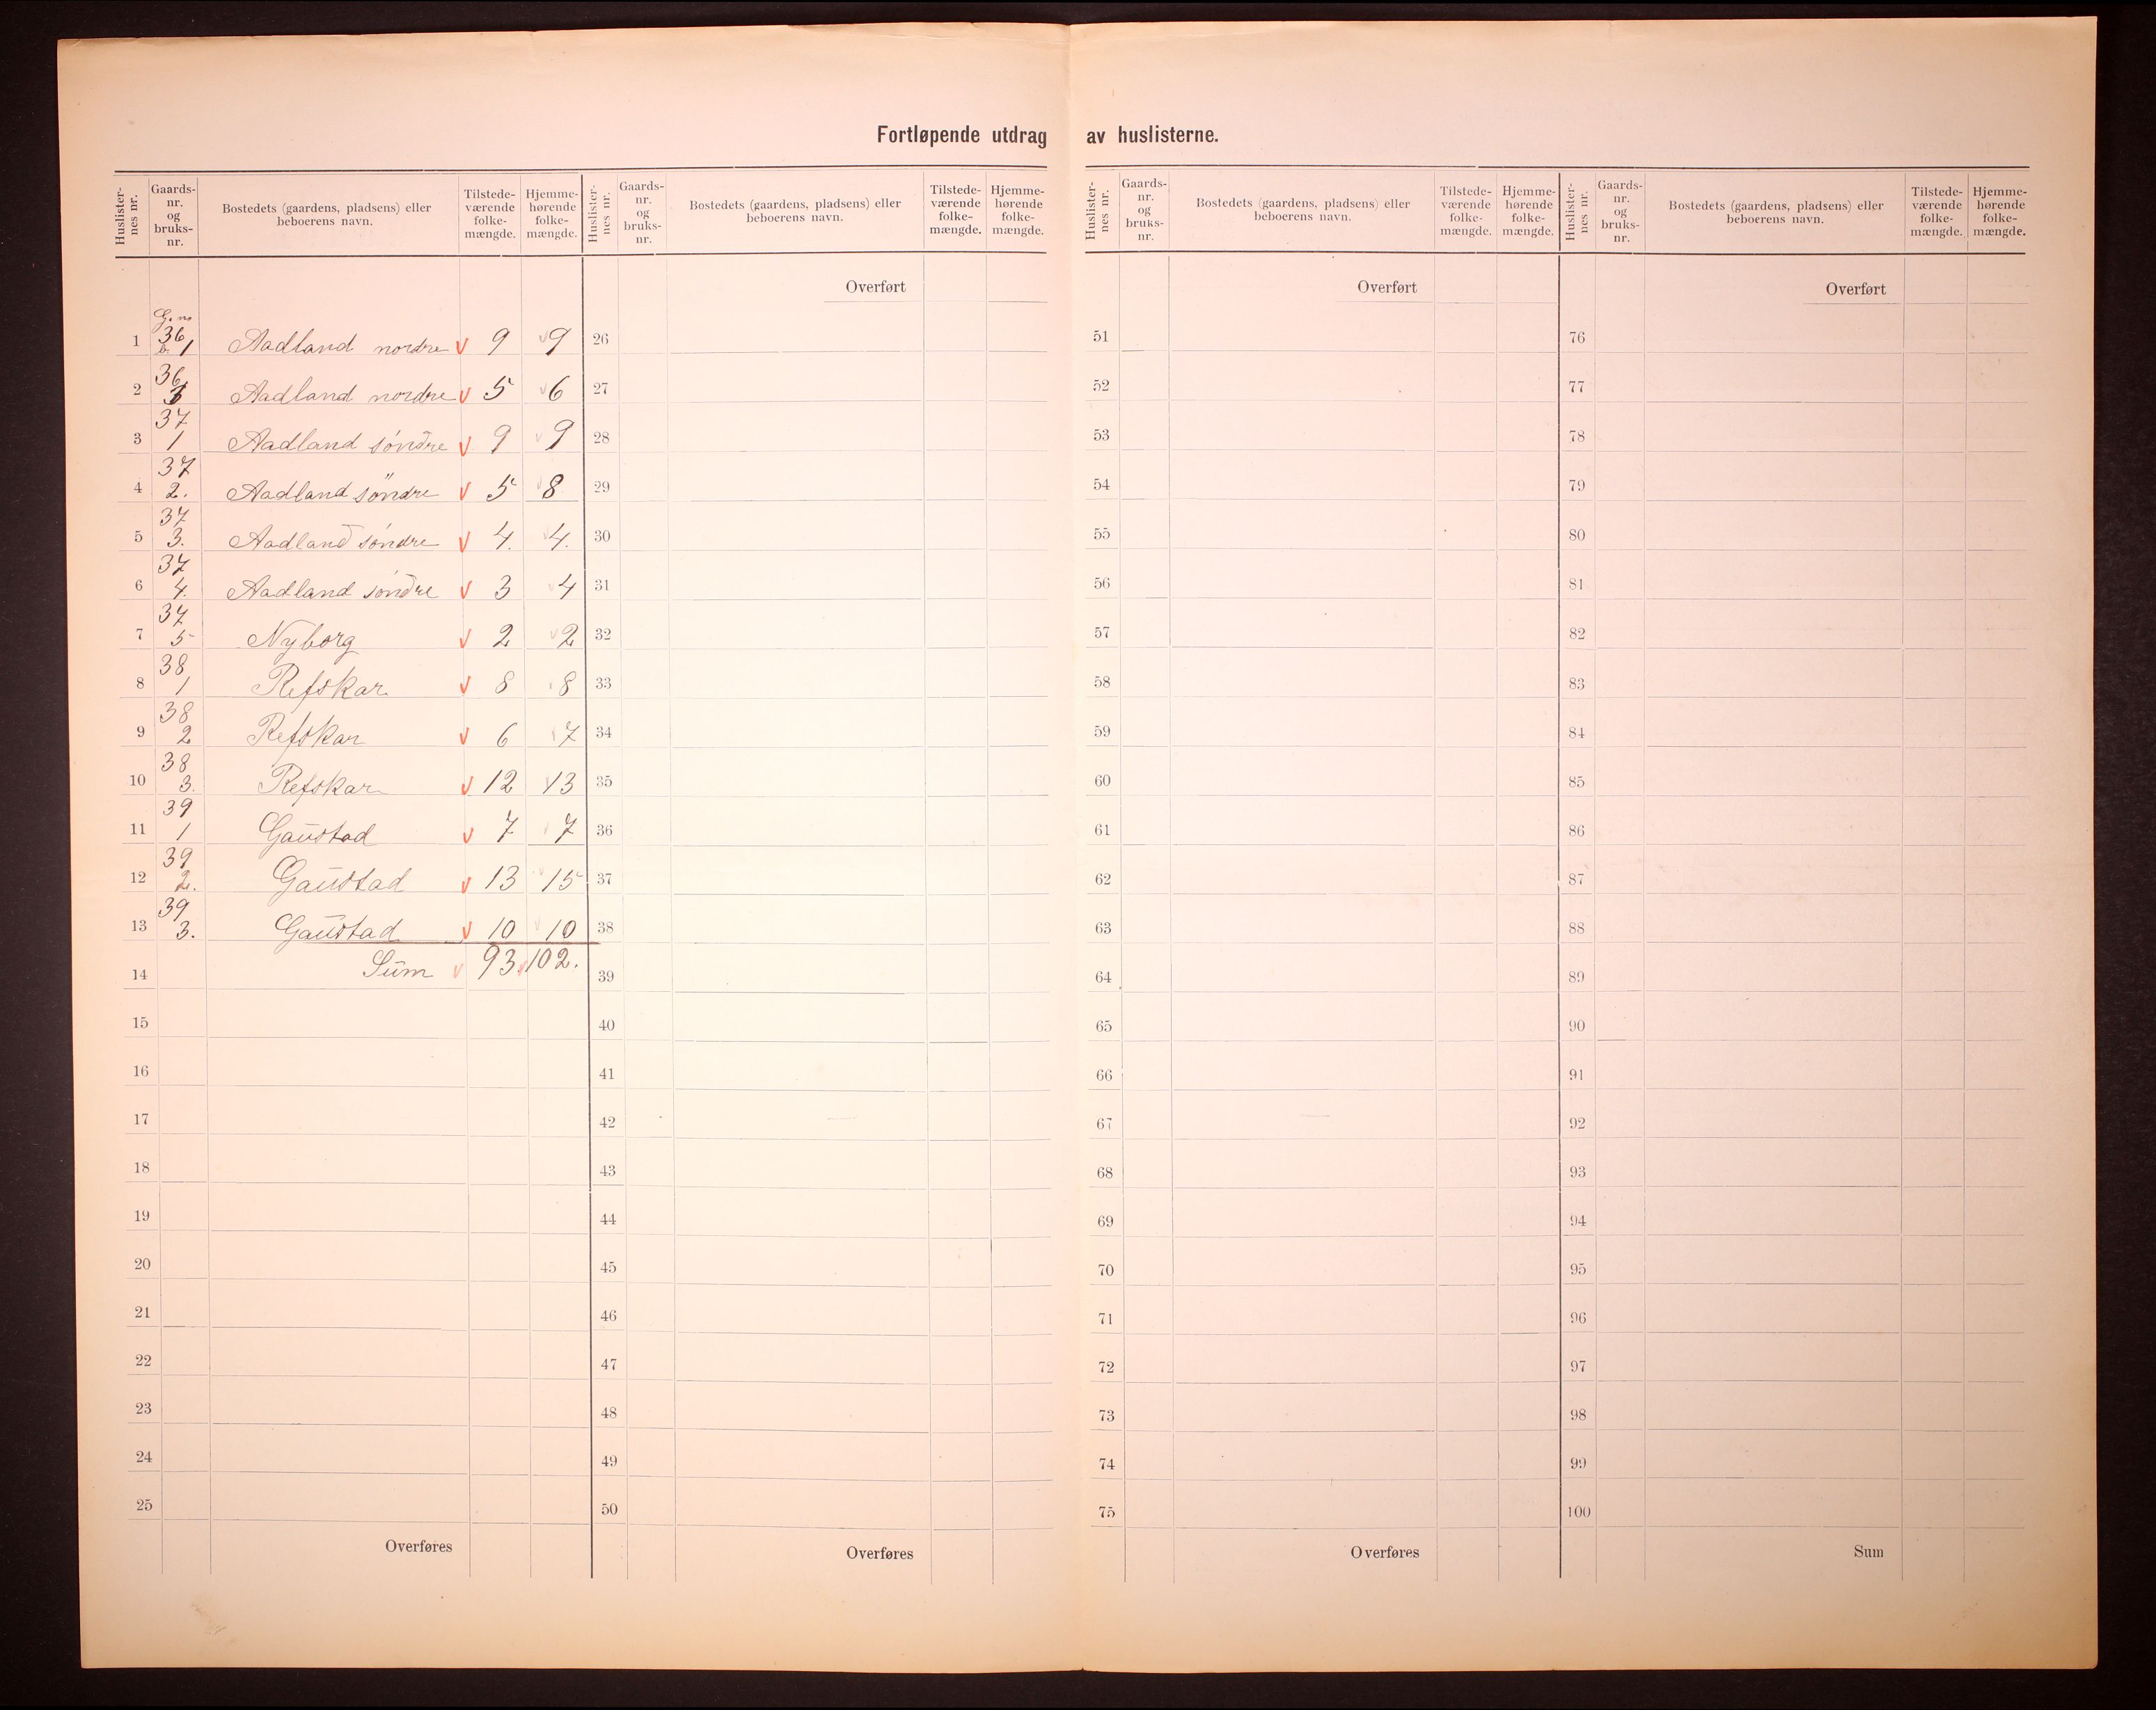 Fortløpende utdrag av huslisterne.
Huslister-nes nr. Gaards-nr. og bruks-nr. Bostedets (gaardens, pladsens) eller beboerens navn. Tilstede-værende folke-mængde. Hjemme-hørende folke-mængde. Huslister-nes nr. Gaards-nr. og bruks-nr. Bostedets (gaardens, pladsens) eller beboerens navn. Tilstede-værende folke-mængde. Hjemme-hørende folke-mængde. Huslister-nes nr. Gaards-nr. og bruks-nr. Bostedets (gaardens, pladsens) eller beboerens navn. Tilstede-værende folke-mængde. Hjemme-hørende folke-mængde. Huslister-nes nr. Gaards-nr. og bruks-nr. Bostedets (gaardens, pladsens) eller beboerens navn. Tilstede-værende folke-mængde. Hjemme-hørende folke-mængde.
Overført Overført Overført
G. nr
1 36 b. 1 Aadland nordre v 9 v 9 26 51 76
2 36 3 Aadland nordre v 5 v 6 27 52 77
3 37 1 Aadland søndre v 9 v 9 28 53 78
4 37 2. Aadland söndre v 5 v 8 29 54 79
5 37 3. Aadland søndre v 4. v 4. 30 55 80
6 37 4. Aadland søndre v 3 v 4 31 56 81
7 37 5 Nyborg v 2 v 2 32 57 82
8 38 1 Refskar v 8 v 8 33 58 83
9 38 2 Refskar v 6 v 7 34 59 84
10 38 3. Refskar v 12 v 13 35 60 85
11 39 1 Gaustad v 7 v 7 36 61 86
12 39 2. Gaustad v 13 v 15 37 62 87
13 39 3. Gaustad v 10 v 10 38 63 88
14 Sum v 93 v 102. 39 64 89
15 40 65 90
16 41 66 91
17 42 67 92
18 43 68 93
19 44 69 94
20 45 70 95
21 46 71 96
22 47 72 97
23 48 73 98
24 49 74 99
25 50 75 100
Overføres Overføres Overføres Sum